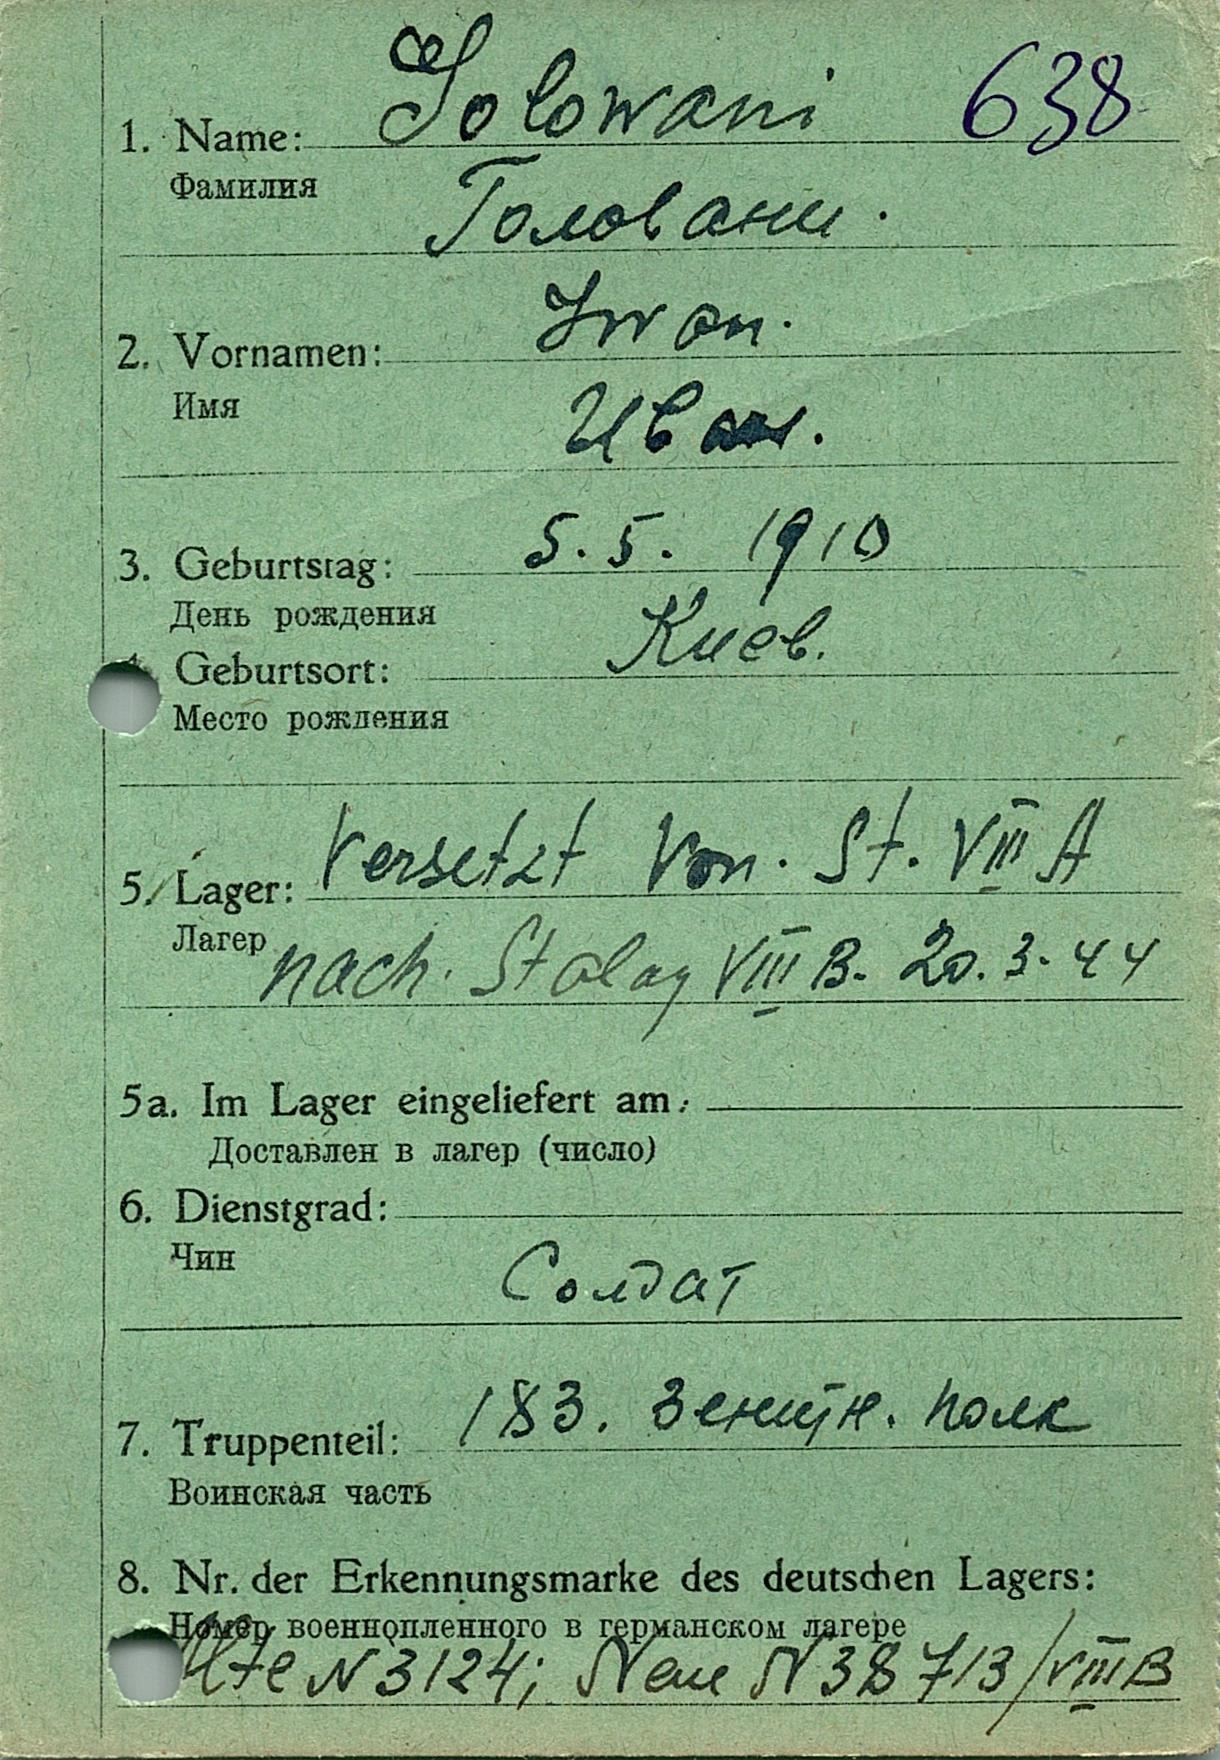 1. Name: Golowani 638
Фамилия Головани.
2. Vornamen: Iwan.
Имя Иван.
3. Geburtstag: 5.5. 1910
День рождения
4. Geburtsort: Киев.
Место рождения
5. Lager: Versetzt Von. St. VIII A
Лагер nach. Stalag VIII B. 20.3.44
5a. Im Lager eingeliefert am:
Доставлен в лагер (число)
6. Dienstgrad:
Чин Солдат
7. Truppenteil: 183. Зенитн. полк
Воинская часть
8. Nr. der Erkennungsmarke des deutschen Lagers:
Номер военнопленного в германском лагере
Alte N 3124; Neue N 38713/VIII B